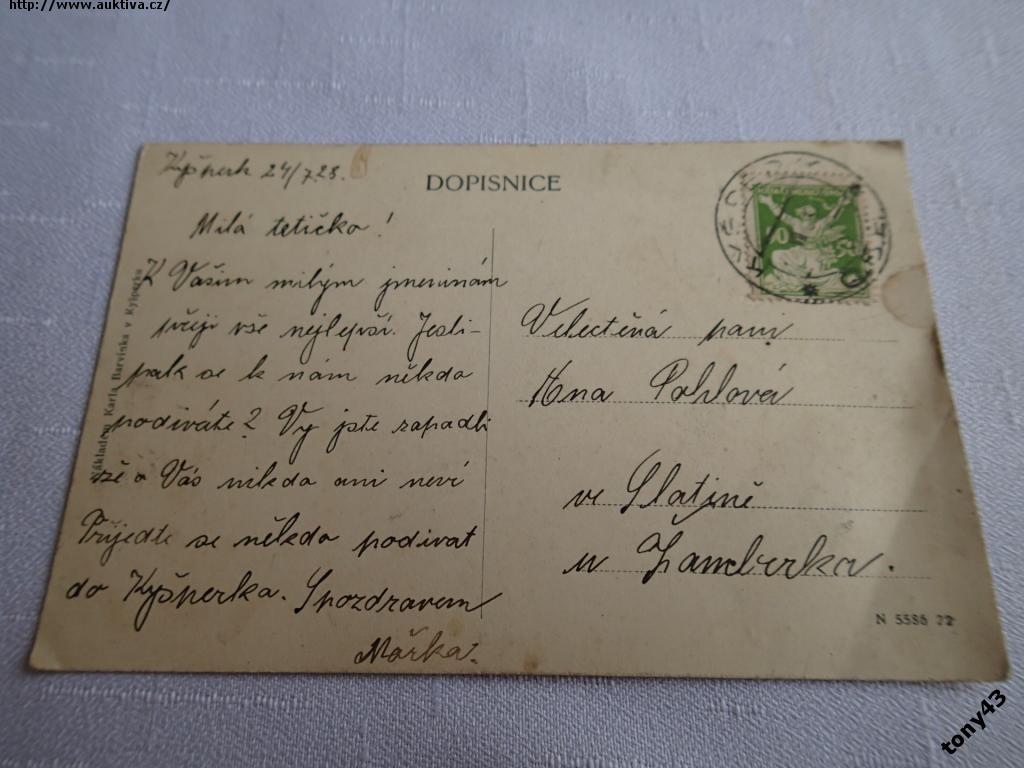 http://www.auktiva.cz/
Kyšperk 24/7 23.
DOPISNICE
Milá tetičko!
K Vašim milým jmeninám
přeji vše nejlepší. Jestli-
pak se k nám někdo
podíváte? Vy jste zapadli
že o Vás nikdo ani neví
Přijedte se někdo podívat
do Kyšperka. S pozdravem
Mařka.
Velectěná paní
Anna Pohlová
ve Slatině
u Žamberka.
Nákladem Karla Barvínka v Kyšperku
N 5586 22
tony43